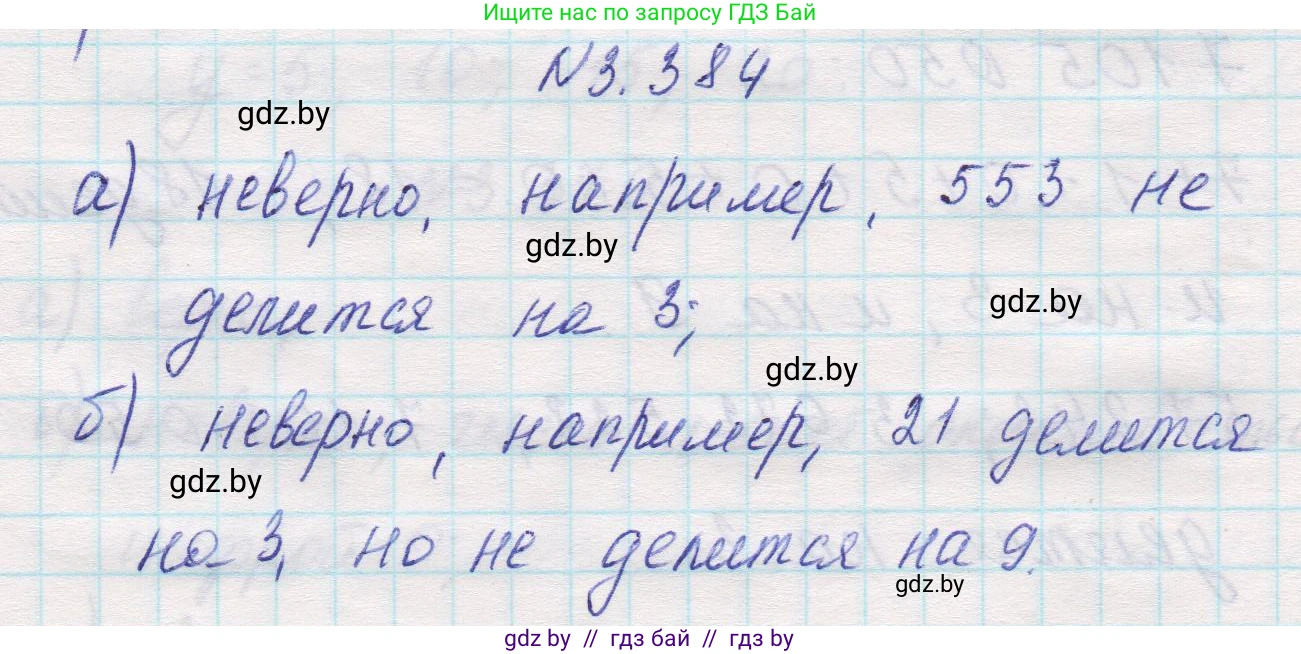 Ищите нас по запросу ГДЗ Бай
N3.384
gdz.by
а) неверно, например, 553 не
gdz.by
делится на 3;
gdz.by
gdz.by
б) неверно, например, 21 делится
gdz.by
на 3, но не делится на 9.
gdz.by
gdz by // гдз бай // гдз by